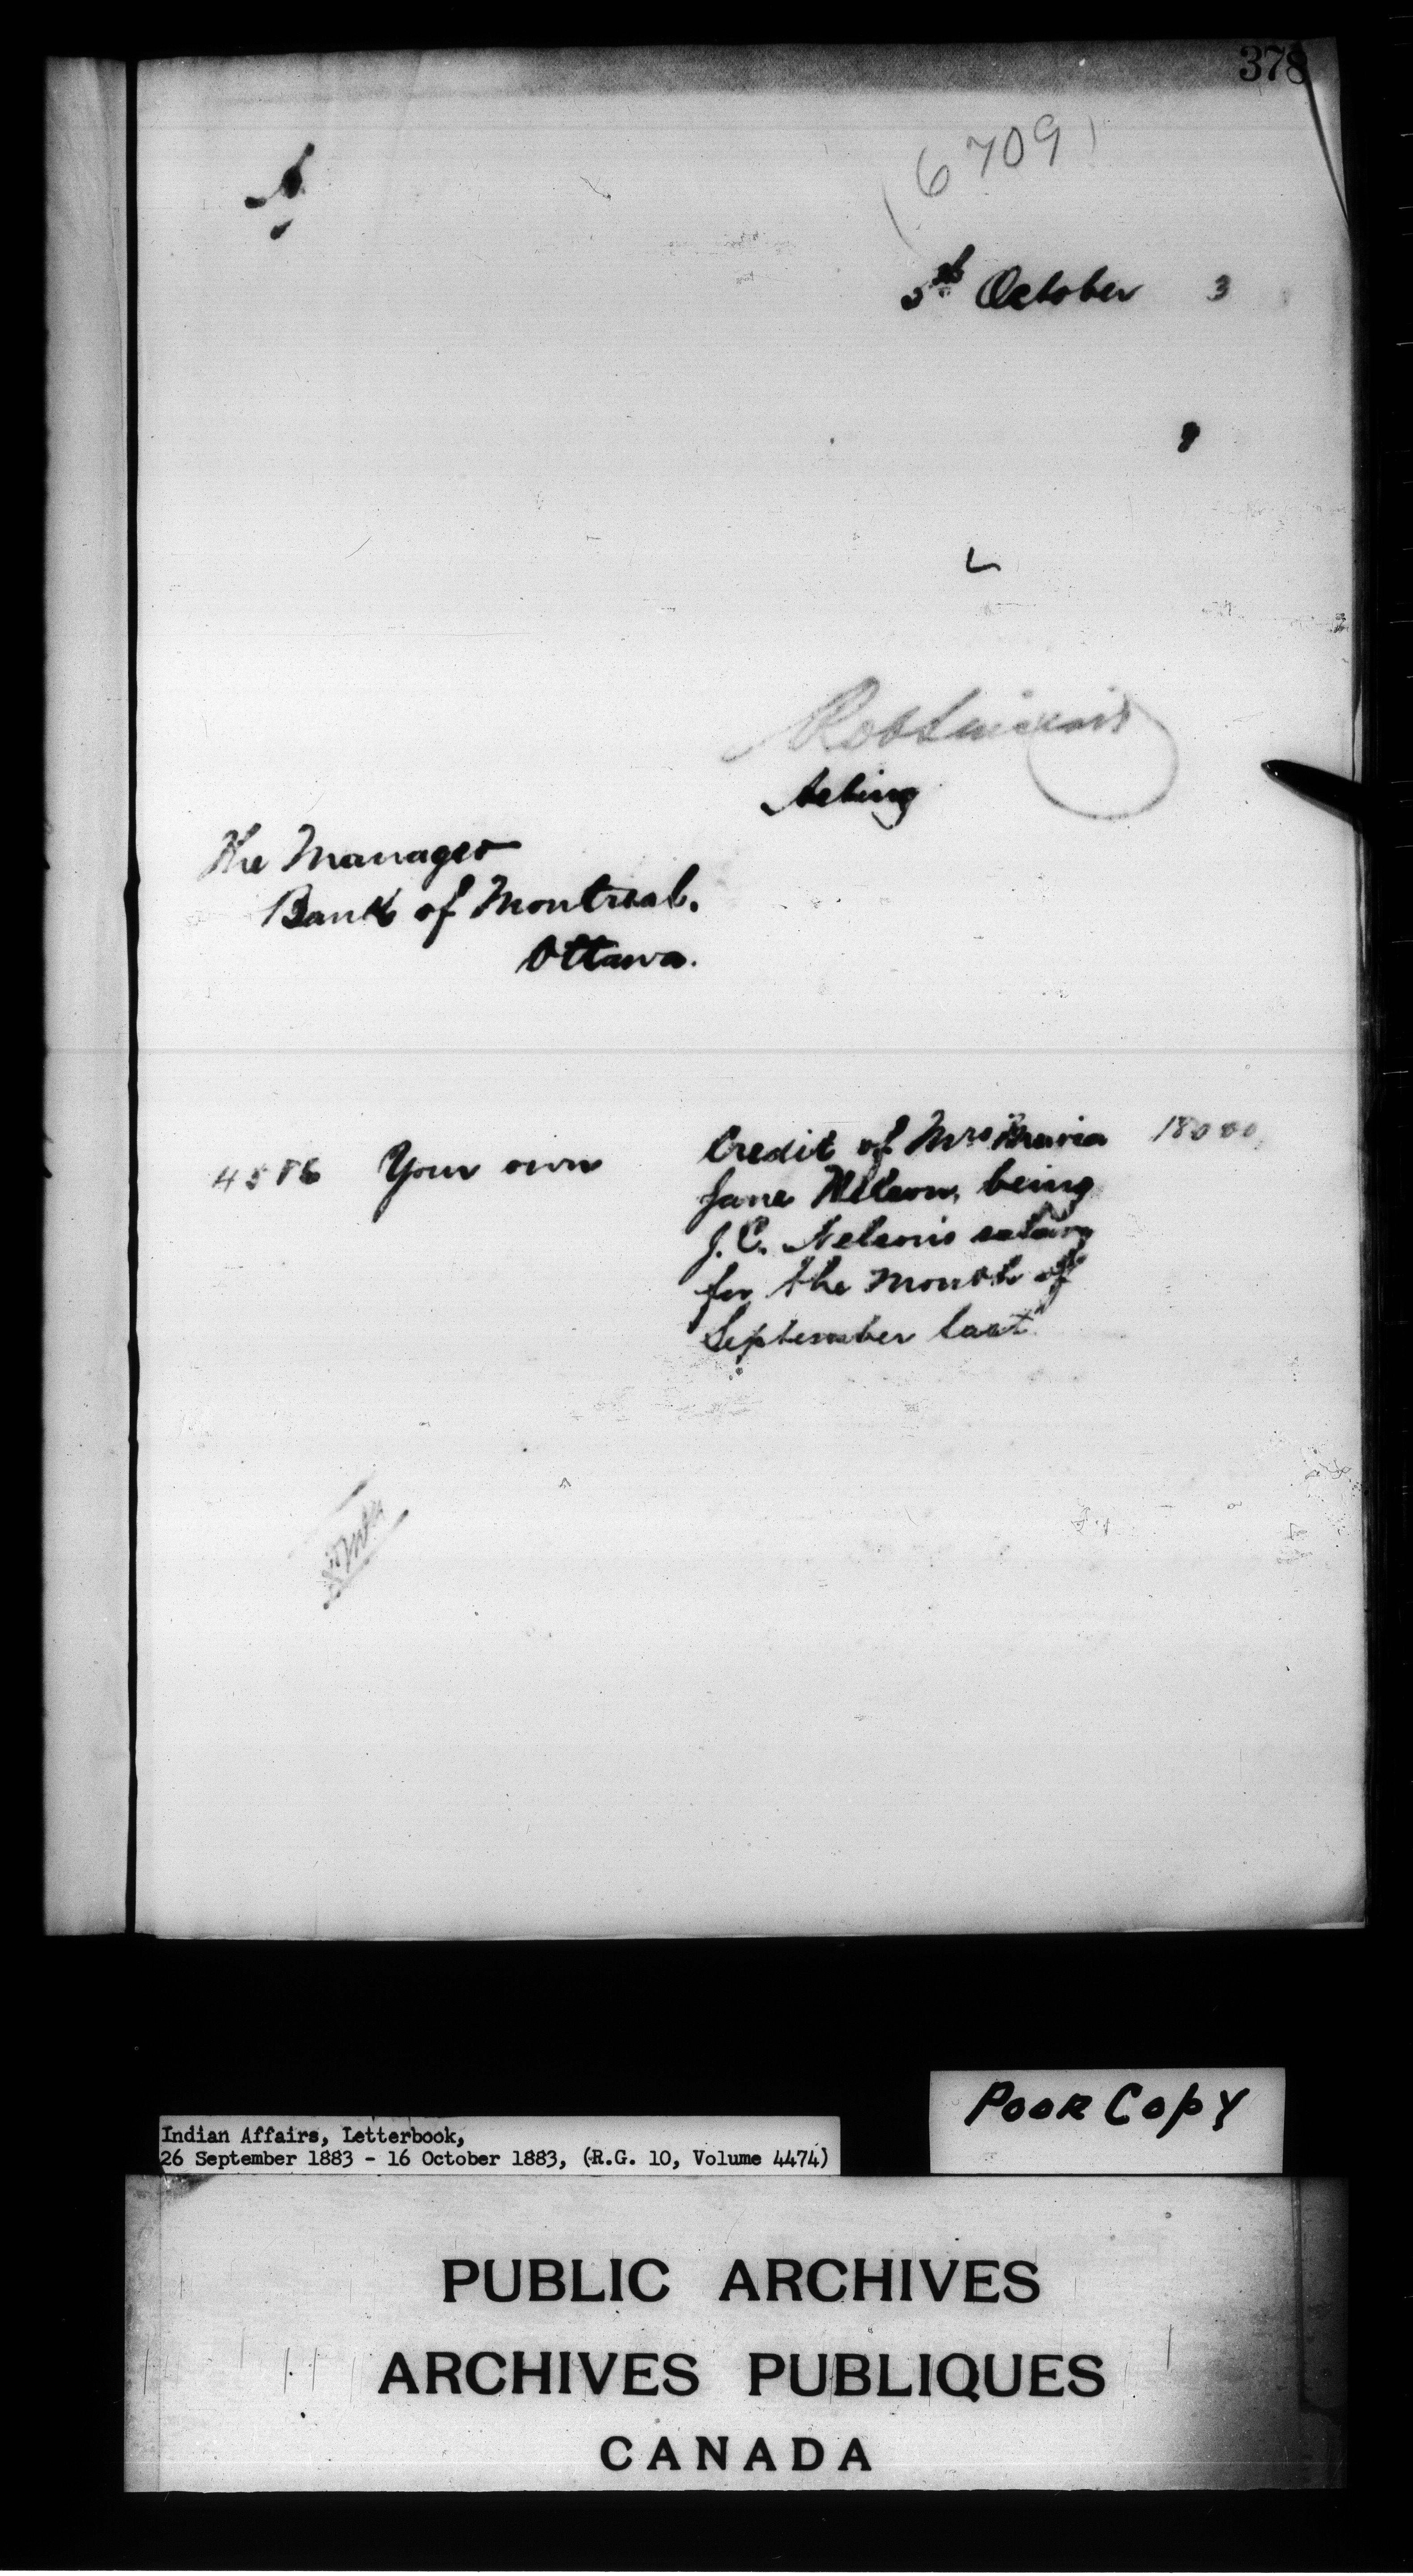 378
(6709)
5th October 3
Rob Sinclair
Acting
The Manager
Bank of Montreal.
Ottawa.
4586 Your own Credit of Mrs Maria 180 00
Jane Nelson, being
J. C. Nelson's salary
for the month of
September last
Poor Copy
Indian Affairs, Letterbook,
26 September 1883 - 16 October 1883, (R.G. 10, Volume 4474)
PUBLIC ARCHIVES
ARCHIVES PUBLIQUES
CANADA